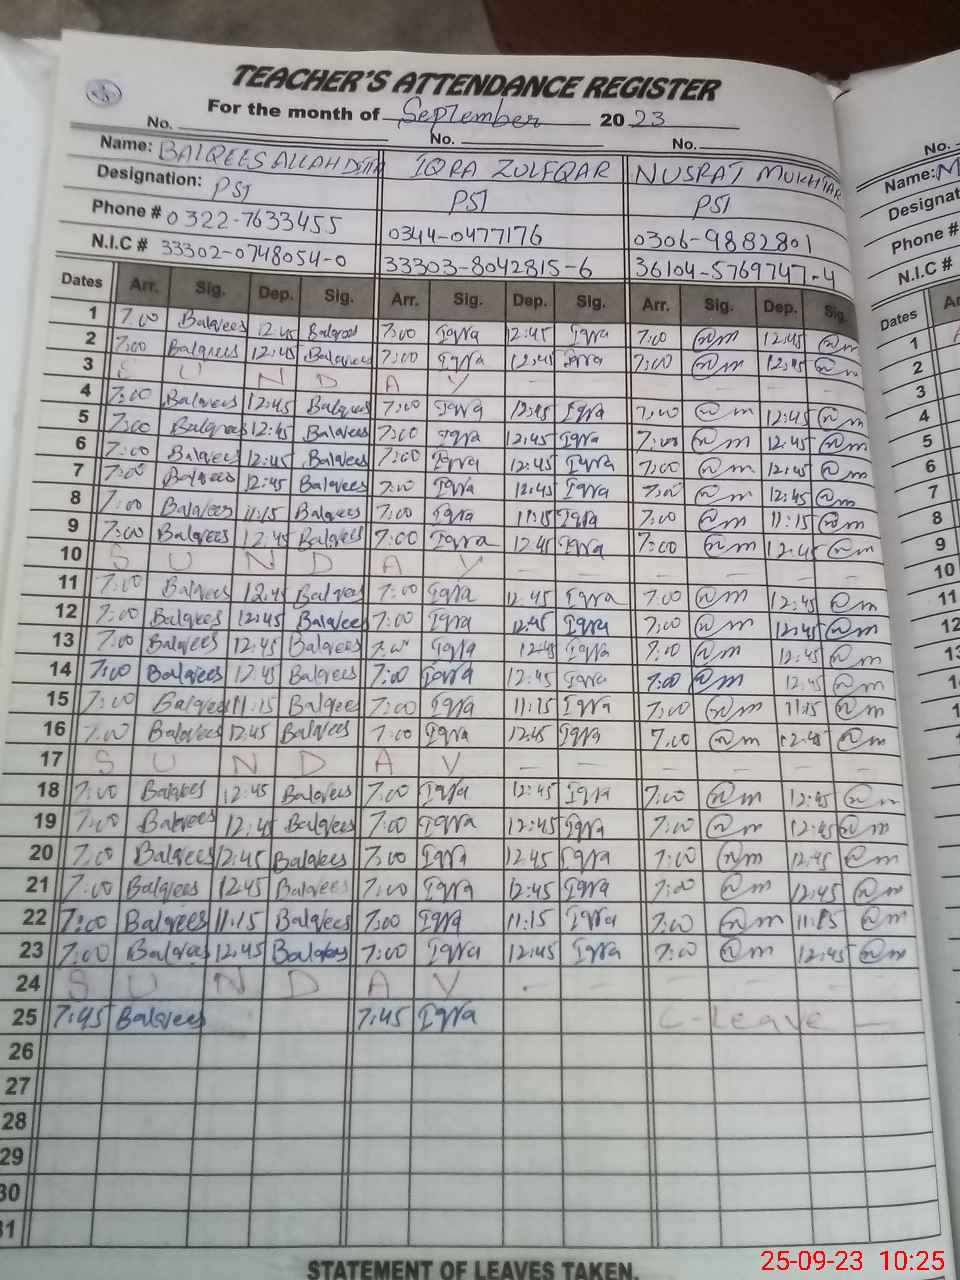 TEACHER'S ATTENDANCE REGISTER
For the month of September 2023
No. No. No.
Name: BALQEES ALLAH DITTA IQRA ZULFQAR NUSRAT MUKHTAR
Designation: PST PST PST
Phone # 0322-7633455 0344-0477176 0306-9882801
N.I.C # 33302-0748054-0 33303-8042815-6 36104-5769747-4
Dates Arr. Sig. Dep. Sig. Arr. Sig. Dep. Sig. Arr. Sig. Dep. Sig.
1 7:00 Balqees 12:45 Balqees 7:00 Iqra 12:45 Iqra 7:00 12:45
2 7:00 Balqees 12:45 Balqees 7:00 Iqra 12:45 Iqra 7:00 12:45
3 S U N D A Y - - - - - -
4 7:00 Balqees 12:45 Balqees 7:00 Iqra 12:45 Iqra 7:00 12:45
5 7:00 Balqees 12:45 Balqees 7:00 Iqra 12:45 Iqra 7:00 12:45
6 7:00 Balqees 12:45 Balqees 7:00 Iqra 12:45 Iqra 7:00 12:45
7 7:00 Balqees 12:45 Balqees 7:00 Iqra 12:45 Iqra 7:00 12:45
8 7:00 Balqees 11:15 Balqees 7:00 Iqra 11:15 Iqra 7:00 11:15
9 7:00 Balqees 12:45 Balqees 7:00 Iqra 12:45 Iqra 7:00 12:45
10 S U N D A Y - - - - - -
11 7:00 Balqees 12:45 Balqees 7:00 Iqra 12:45 Iqra 7:00 12:45
12 7:00 Balqees 12:45 Balqees 7:00 Iqra 12:45 Iqra 7:00 12:45
13 7:00 Balqees 12:45 Balqees 7:00 Iqra 12:45 Iqra 7:00 12:45
14 7:00 Balqees 12:45 Balqees 7:00 Iqra 12:45 Iqra 7:00 12:45
15 7:00 Balqees 11:15 Balqees 7:00 Iqra 11:15 Iqra 7:00 11:15
16 7:00 Balqees 12:45 Balqees 7:00 Iqra 12:45 Iqra 7:00 12:45
17 S U N D A Y - - - - - -
18 7:00 Balqees 12:45 Balqees 7:00 Iqra 12:45 Iqra 7:00 12:45
19 7:00 Balqees 12:45 Balqees 7:00 Iqra 12:45 Iqra 7:00 12:45
20 7:00 Balqees 12:45 Balqees 7:00 Iqra 12:45 Iqra 7:00 12:45
21 7:00 Balqees 12:45 Balqees 7:00 Iqra 12:45 Iqra 7:00 12:45
22 7:00 Balqees 11:15 Balqees 7:00 Iqra 11:15 Iqra 7:00 11:15
23 7:00 Balqees 12:45 Balqees 7:00 Iqra 12:45 Iqra 7:00 12:45
24 S U N D A Y - - - - - -
25 7:45 Balqees 7:45 Iqra C-Leave -
26
27
28
29
30
31
STATEMENT OF LEAVES TAKEN.
No.
Name: M
Designat
Phone #
N.I.C #
Dates
1
2
3
4
5
6
7
8
9
10
11
12
25-09-23 10:25